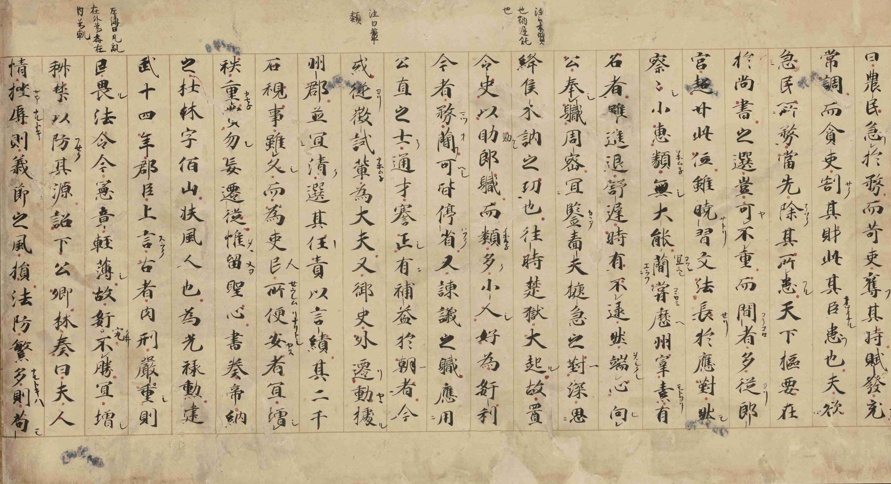 曰農民急於務而苛吏奪其時賦發充
常調而貪吏割其財此其巨患也夫欲
急民所務當先除其所患天下樞要在
於尚書之選豈可不重而間者多從郎
官超升此位雖曉習文法長於應對然
察々小惠類無大能蕳甞歷州宰素有
名者雖進退舒遲時有不逮然端心向
公奉職周密宜鑒嗇夫捷急之對深思
絳侯木訥之功也往時楚獄大起故置
令史以助郎職而類多小人好為姧利
今者務蕳可時停省又諫議之職應用
公直之士通才謇正有補益於朝者今
或從徵試輩為大夫又御史外遷動據
州郡並宜清選其任責以言績其二千
石視事雖久而為吏民所便安者宜增
秩重賞勿妄遷徙惟留聖心書奏帝納
之杜林字伯山扶風人也為光祿勳建
武十四年郡臣上言古者肉刑嚴重則
民畏法令今憲章輕薄故姧不勝宜增
科禁以防其源詔下公卿林奏曰夫人
情挫辱則義節之風損法防繁多則苟
注曰輩
類
左傳曰凡亂
在外為姦在
内為軌